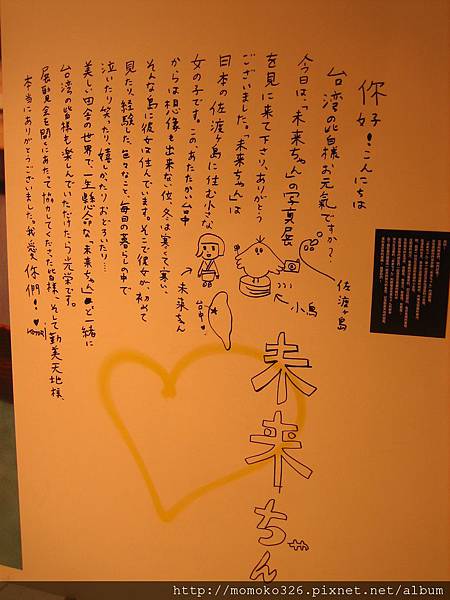 你好!こんにちは
台湾の皆様お元気ですか?
今日は、「未来ちゃん」の写真展
を見に来て下さり、ありがとう
ございました。「未来ちゃん」は
日本の佐渡ヶ島に住む小さな
女の子です。この、あたたかい台中
からは想像も出来ない位、冬は寒くて寒い、
そんな島に彼女は住んでいます。そこで彼女が、初めて
見たり、経験した、色々なこと、毎日の暮らしの中で
泣いたり笑ったり、嬉しかったりおどろいたり…
美しい田舎の世界で、一生懸命な「未来ちゃん」と一緒に
台湾の皆様も楽しんでいただけたら光栄です。
展覧会を開くにあたって協力してくださった皆様、そして勤美天地様、
本当にありがとうございました。我愛你們!
佐渡ヶ島
小鳥
未来ちゃん
台中
未来ちゃん
http://momoko326.pixnet.net/album